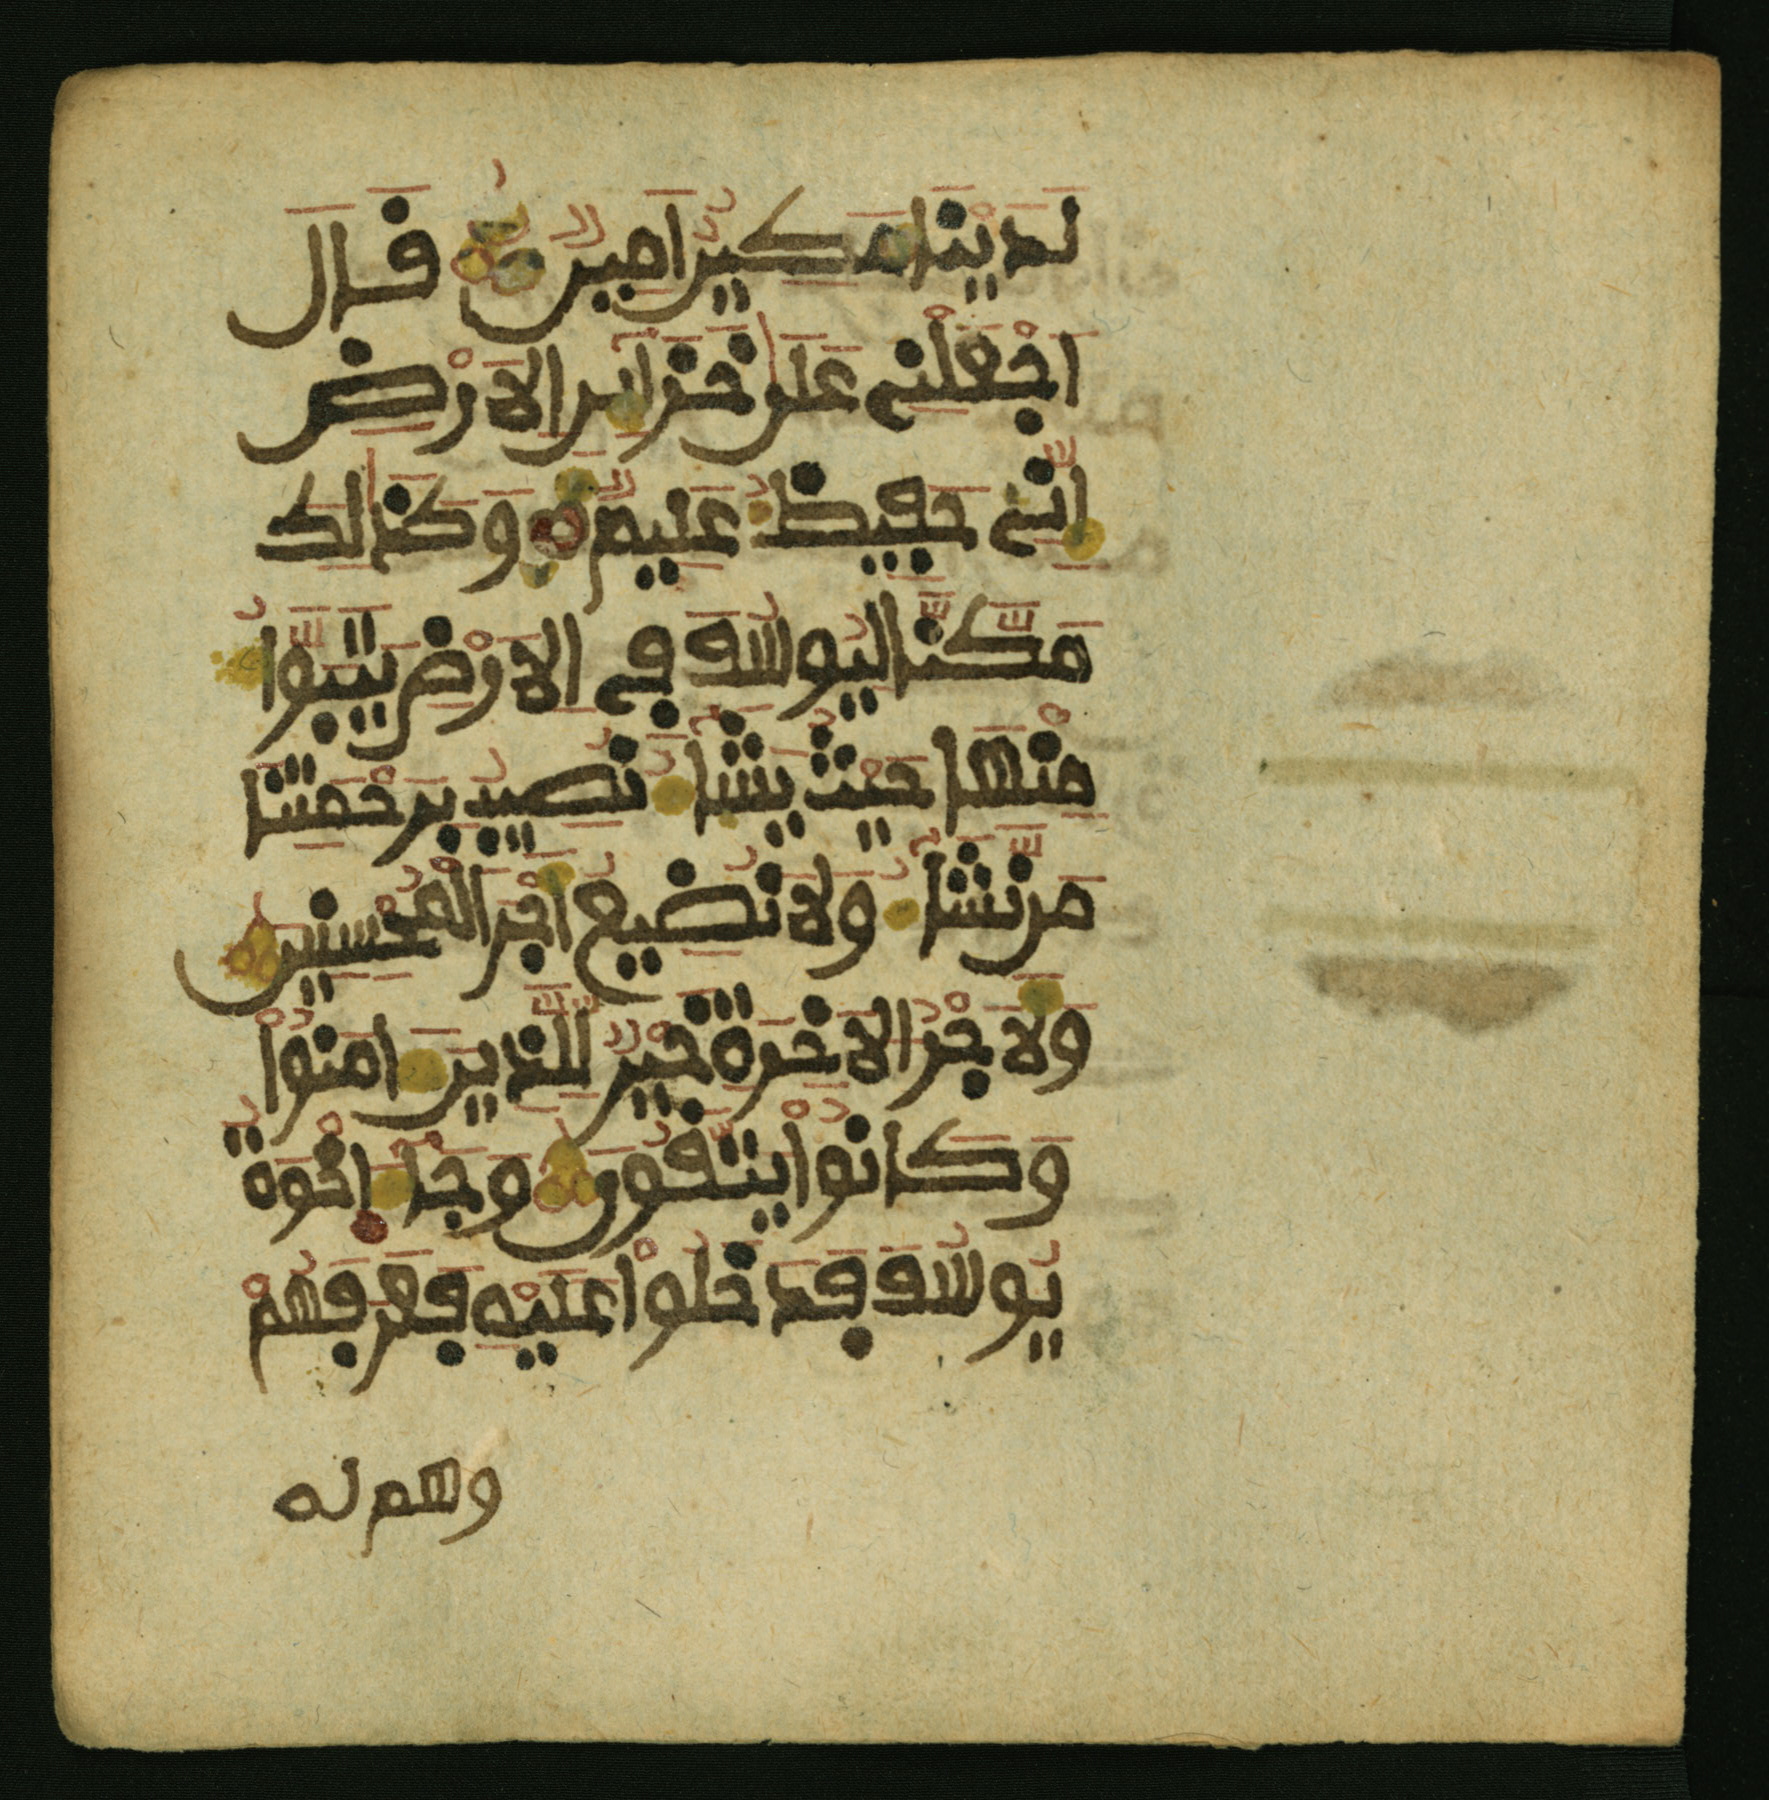 لَدَيْنَا مَكِينٌ اَمِينٌ قَالَ
اَجْعَلْنِے عَلَىٰ خَزَآئِنِ اِ۬لَارْضِ
إِنِّے حَفِيظٌ عَلِيمٌ وَكَذَٰلِكَ
مَكَّنَّا لِيُوسُفَ فِے اِ۬لَارْضِ يَتَبَوَّأُ
مِنْهَا حَيْثُ يَشَآءُ نُصِيبُ بِرَحْمَتِنَا
مَن نَّشَآءُ وَلَا نُضِيعُ أَجْرَ اَ۬لْمُحْسِنِينَ
وَلَأَجْرُ اُ۬لَاخِرَةِ خَيْرٌ لِّلَّذِينَ ءَامَنُواْ
وَكَانُواْ يَتَّقُونَ وَجَآءَ إِخْوَةُ
يُوسُفَ فَدَخَلُواْ عَلَيْهِ فَعَرَفَهُمْ
وهم له